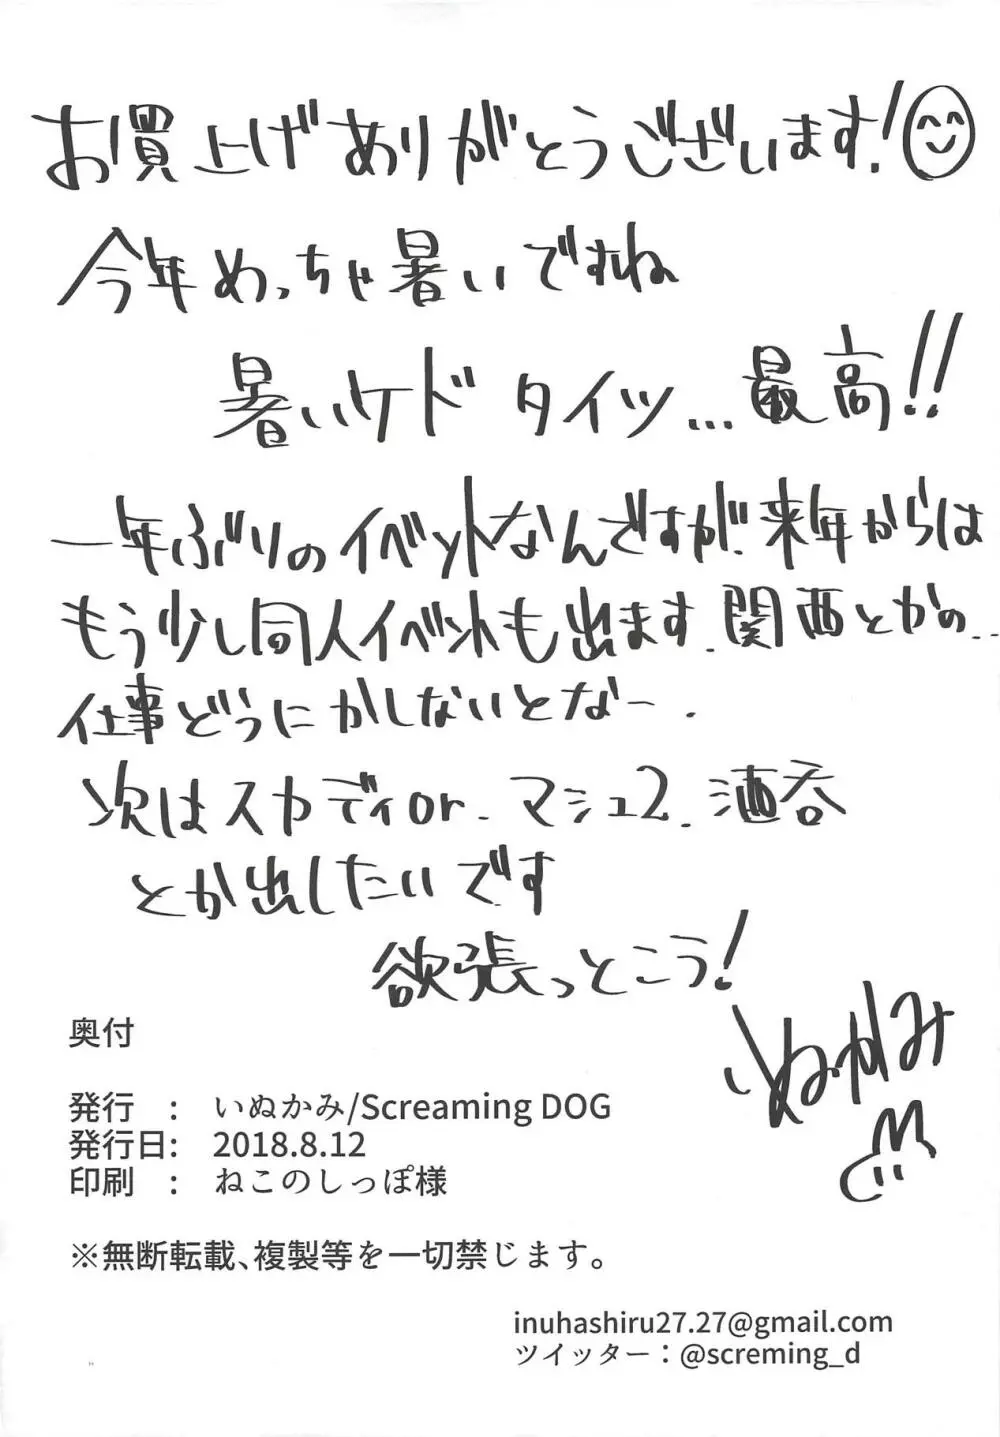 お買上げありがとうございます!
今年めっちゃ暑いですね
暑いケド タイツ...最高!!
一年ぶりのイベントなんですが、来年からは
もう少し同人イベントも出ます.関西とかの...
仕事どうにかしないとなー.
次はスカディor.マシュ2.酒呑
とか出したいです
欲張っとこう!
いぬかみ
奥付
発行 : いぬかみ/Screaming DOG
発行日: 2018.8.12
印刷 : ねこのしっぽ様
※無断転載、複製等を一切禁じます。
inuhashiru27.27@gmail.com
ツイッター：@screming_d